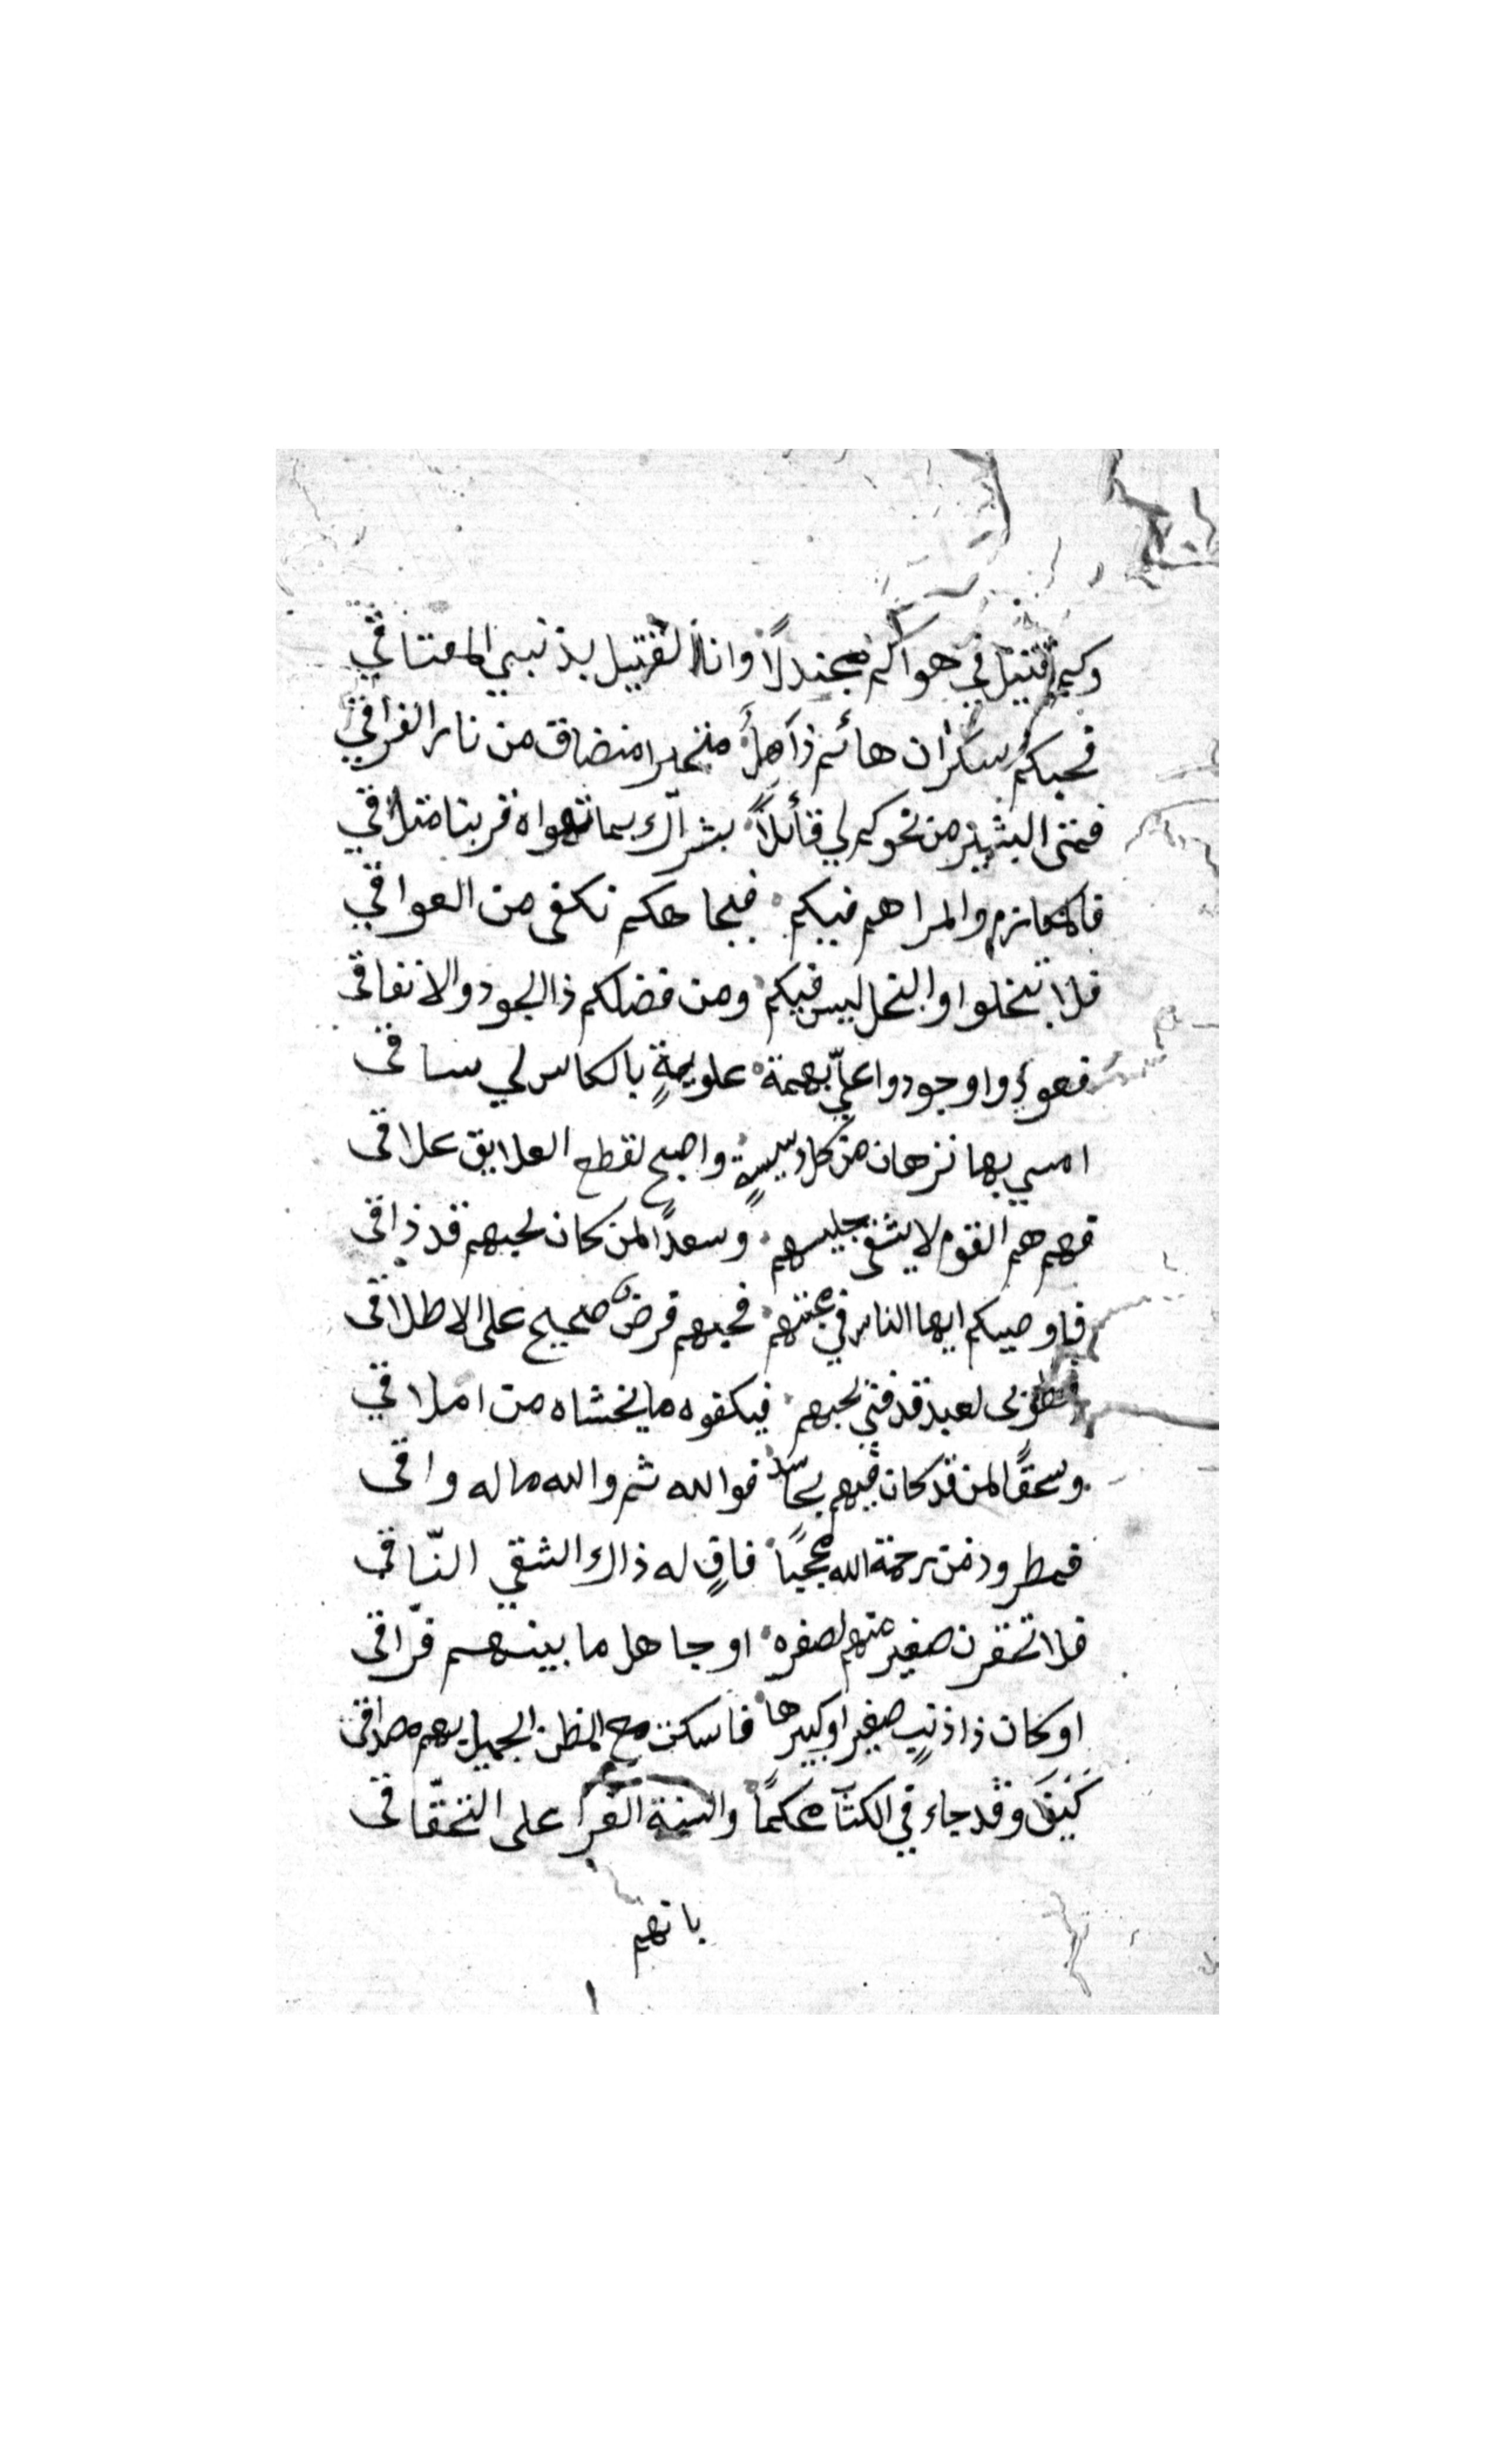 وكم قتيل في هواكم مجندلاً وانا القتيل بذنبي المعتاقي
فحبكم سكران هائم ذآهلاً متحيرا منضاق من نار الفراقي
فمتى البشير من نحوكم لي قآئلاً بشراك بما تهواه قربنا متلاقي
فالمكارم والمراهم فيكم فبجاهكم نكفى من العواقي
فلا تبخلوا والبخل ليس فيكم ومن فضلكم ذا الجود والانفاقي
فعودوا وجودوا عليّ بهمة علويةٍ بالكاس لي ساقي
امسي بها نزهان من كل دسيسةٍ واصبح لقطع العلايق علاقي
فهم هم القوم لا يشقى جليسهم وسعدًا لمن كان لحبهم قد ذاقي
فاوصيكم ايها الناس في محبتهم فحبهم فرض صحيح على الاطلاقي
فطوبى لعبد قد فني لحبهم فيكفوه ما يخشاه من املاقي
وسحقًا لمن قد كان فيهم بحاسد فوالله ثم والله ما له واقي
فمطرود من رحمة الله محجبًا فاقٍ له ذاك الشقي النّاقي
فلا تحقرن صغير منهم لصغره او جاهل ما بينهم فرّاقي
او كان ذا ذنبٍ صغير او كبيرها فاسكن مع الظن الجميل بهم مصداقي
كيف وقد جاء في الكتاب محكمًا والسنة الغرا على التحقّاقي
بانهم